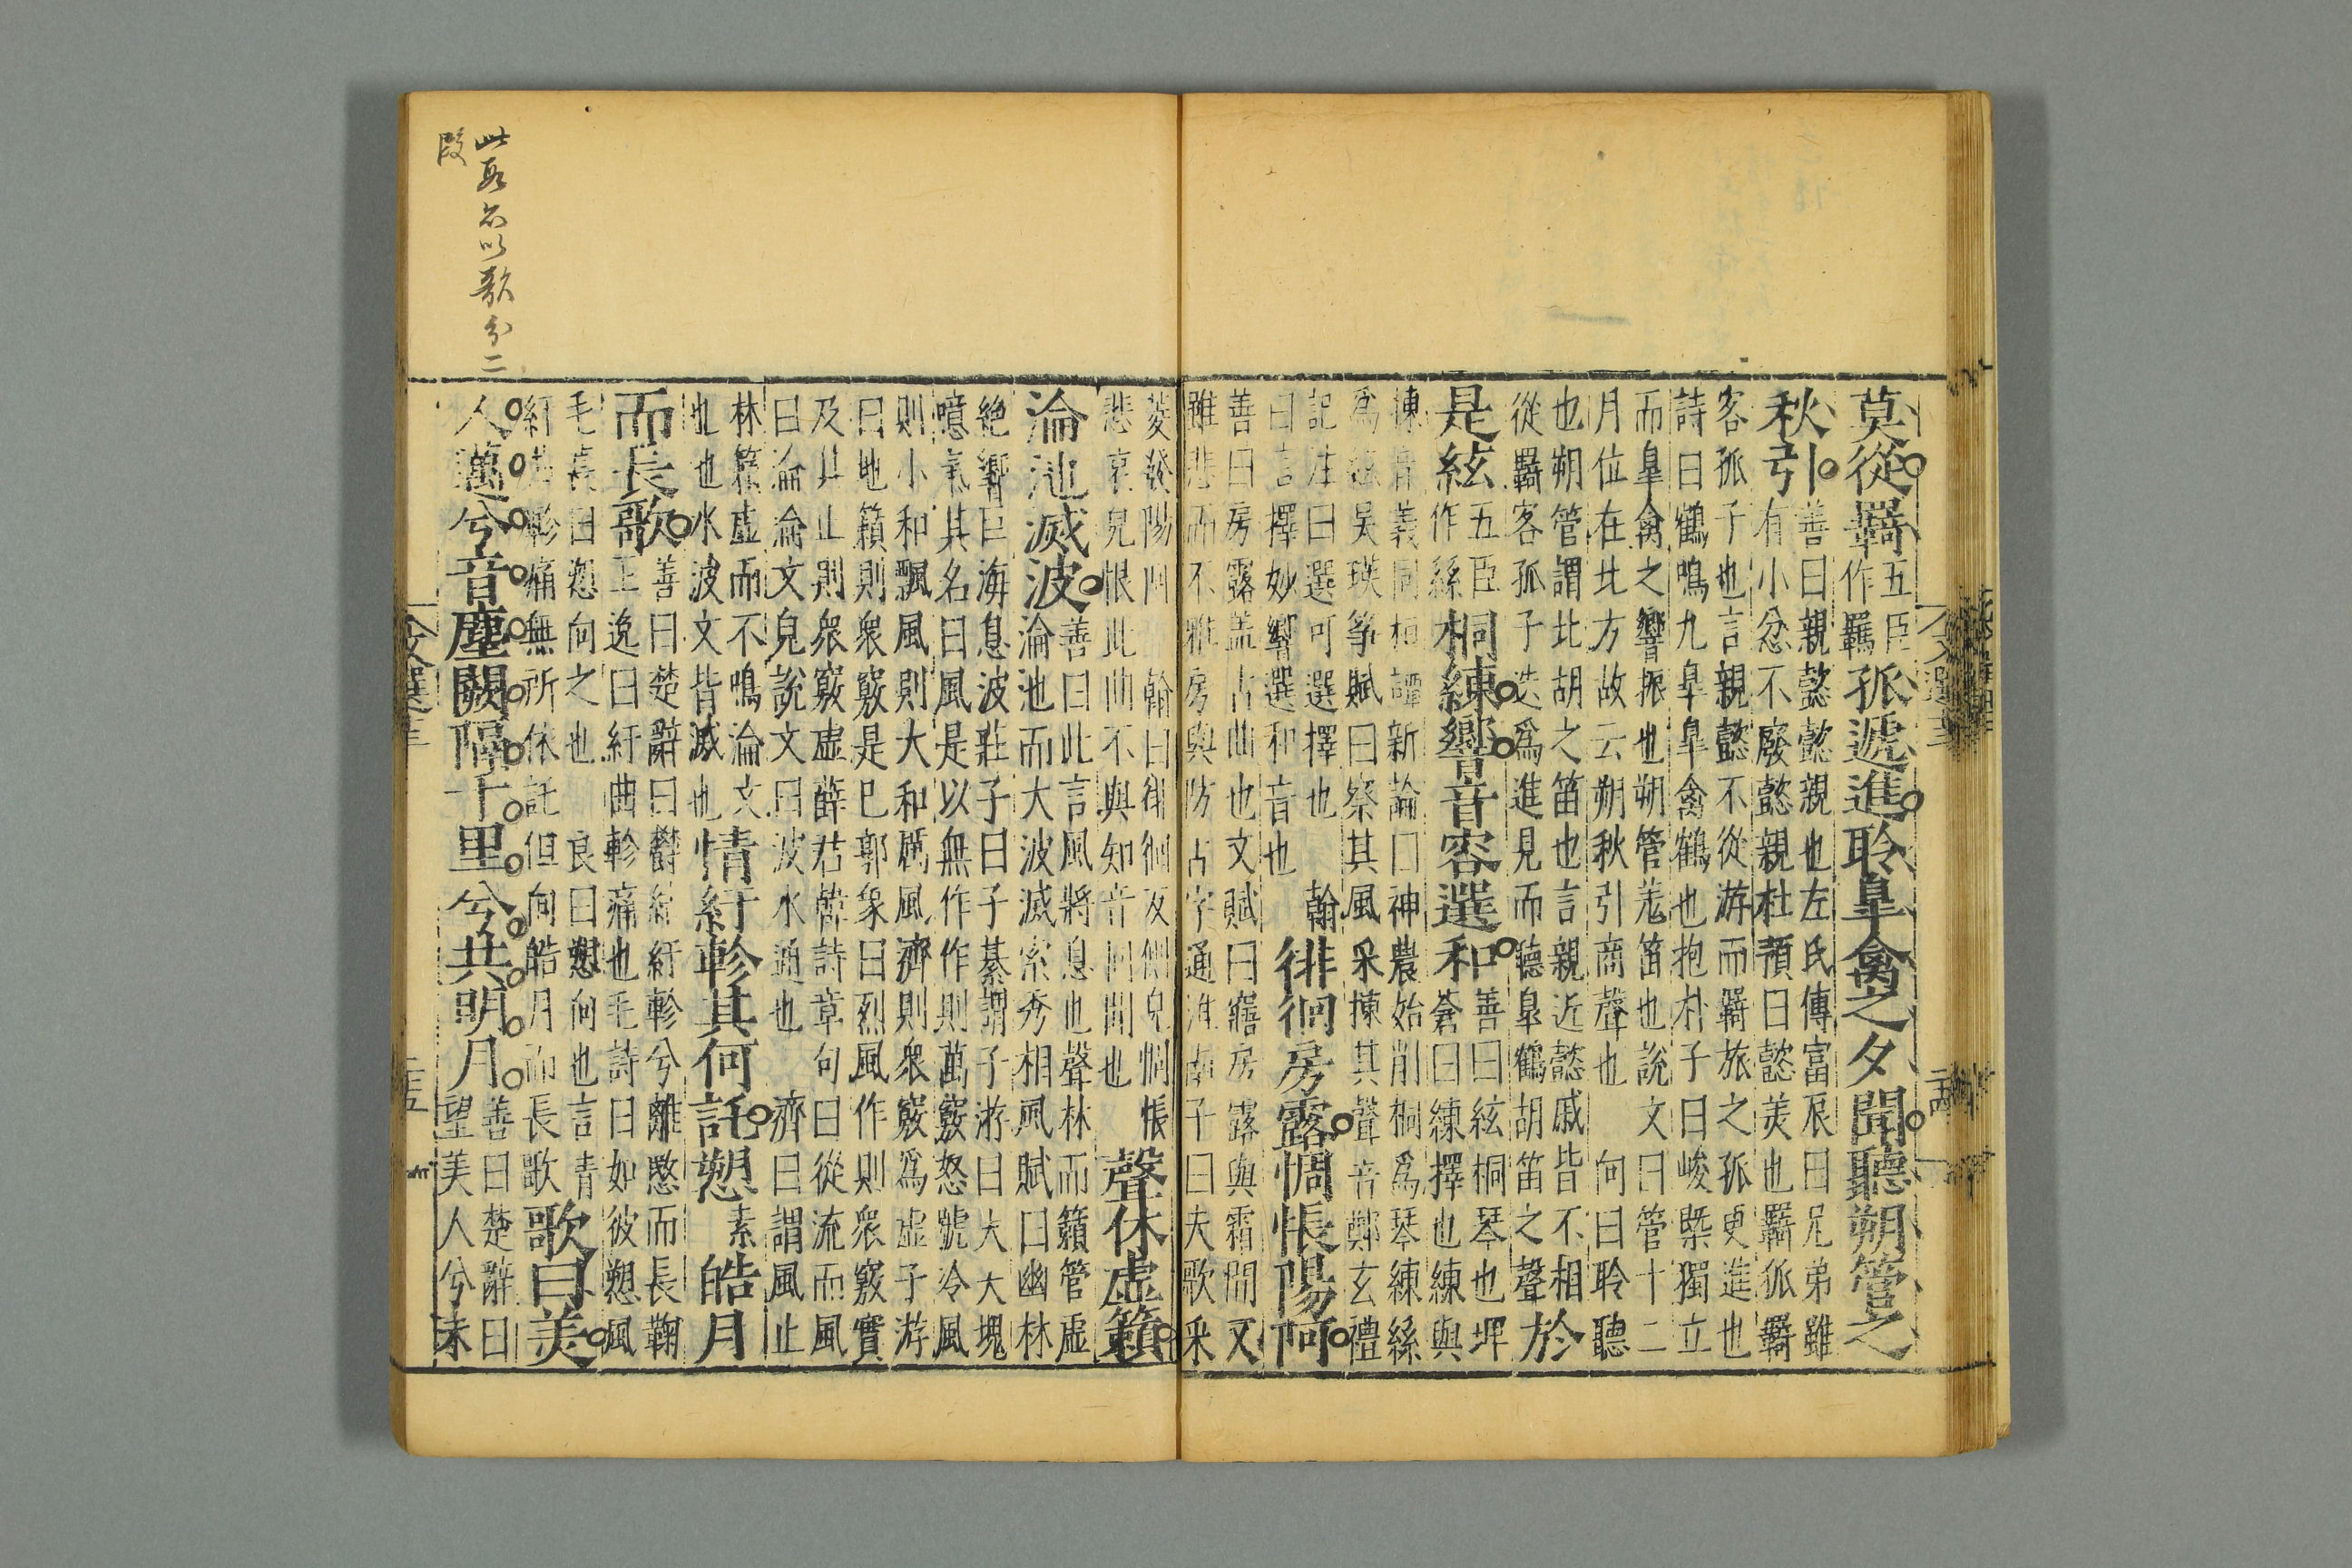 莫從羇五臣作羈孤遞進聆皐禽之夕聞聽朔管之
秋引善曰親懿懿親也左氏傳富辰曰兄弟雖
有小忿不廢懿親杜預曰懿美也羇孤羇
客孤子也言親懿不從游而羇旅之孤更進也
詩曰鶴鳴九皐皐禽鶴也抱朴子曰峻槩獨立
而皐禽之響振也朔管羌笛也說文曰管十二
月位在北方故云朔秋引商聲也 向曰聆聽
也朔管謂北胡之笛也言親近懿戚皆不相
從羇客孤子迭爲進見而聽皐鶴胡笛之聲於
是絃五臣作絲桐練響音容選和善曰絃桐琴也埤
蒼曰練擇也練與
揀音義同桓譚新論曰神農始削桐爲琴練絲
爲絃吳瑛筝賦曰察其風采揀其聲音鄭玄禮
記注曰選可選擇也 翰
曰言擇妙響選和音也徘徊房露惆悵陽阿
善曰房露蓋古曲也文賦曰寤房露與霜間又
雖悲而不雅房與防古字通淮南子曰夫歌采
文選卷十三
二十四
菱發陽阿 翰曰徘徊反側皃惆悵
悲哀皃恨此曲不與知音同聞也聲休虛籟
淪池滅波善曰此言風將息也聲林而籟管虛
淪池而大波滅索秀相風賦曰幽林
絶響巨海息波莊子曰子綦謂子游曰大大塊
噫氣其名曰風是以無作作則萬竅怒號冷風
則小和飄風則大和厲風濟則衆竅爲虛子游
曰地籟則衆竅是巳郭象曰烈風作則衆竅實
及其止則衆竅虛薛君韓詩章句曰從流而風
曰淪淪文皃說文曰波水涌也 濟曰謂風止
林籟虛而不鳴淪文
也池水波文皆滅也情紆軫其何託愬素皓月
而長歌善曰楚辭曰鬱結紆軫兮離愍而長鞠
王逸曰紆曲軫痛也毛詩曰如彼愬風
毛萇曰愬向之也 良曰愬向也言情
紆曲軫痛無所依託但向皓月而長歌歌曰美
人邁兮音塵闕隔千里兮共明月善曰楚辭曰
望美人兮未
此段亦以歌分二
段